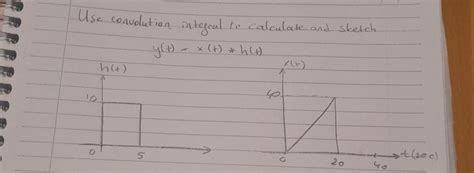 Use convolution integral to calculate and sketch
y(t) = x(t) * h(t)
h(t)
10
0
5
x(t)
40
0
20
40